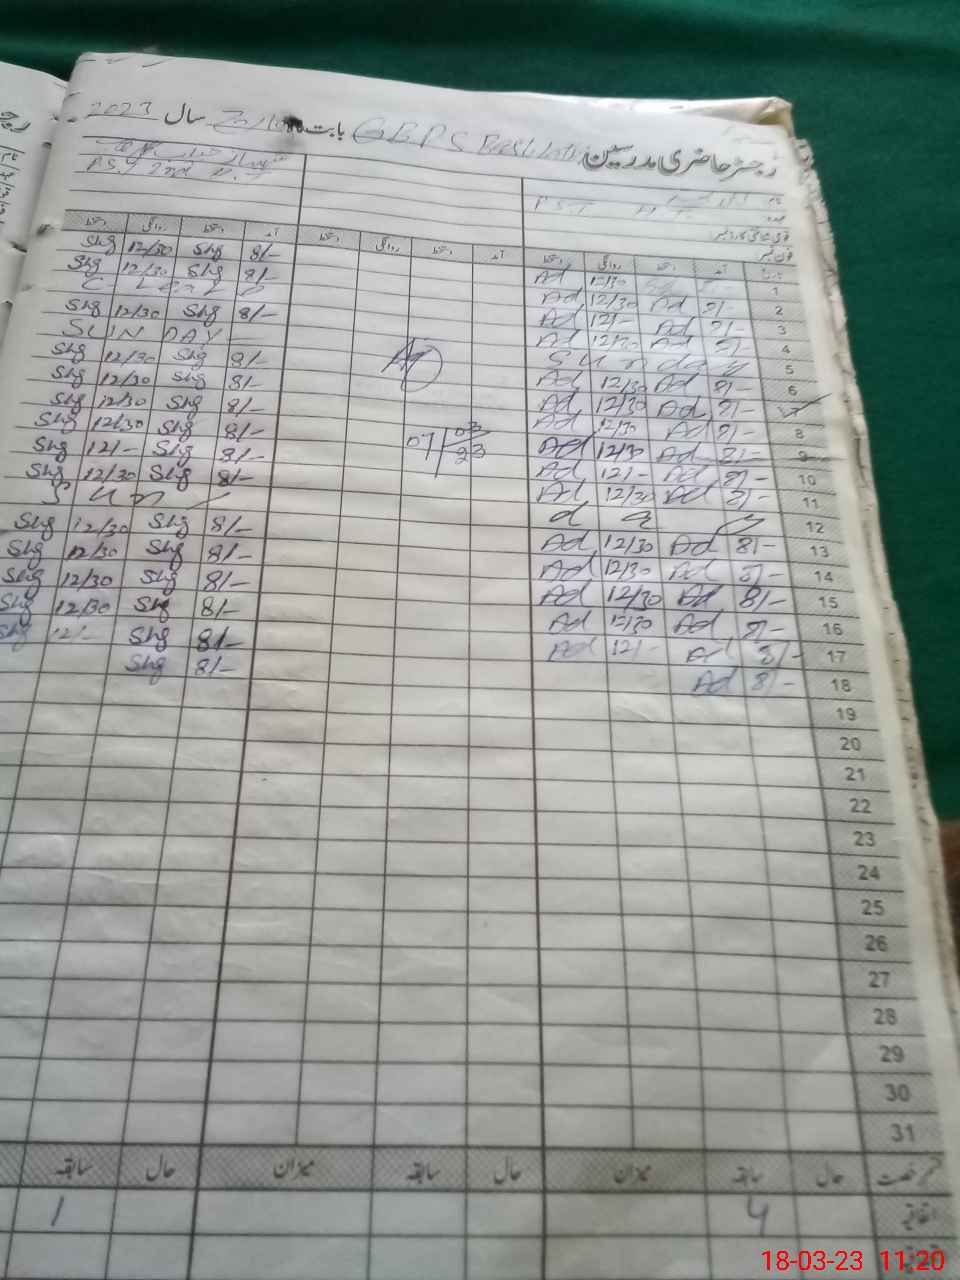 رجسٹر حاضری مدرسین GBPS بابت ماہ سال 2023
P.S.T
P.S.T 2nd
نام
عہدہ
قومی شناختی کارڈ نمبر
فون نمبر
تاریخ آمد دستخط روانگی دستخط آمد دستخط روانگی دستخط آمد دستخط روانگی دستخط
1 Ad 12/30 8/- Shg 12/30 Shg
2 8/- Ad 12/30 Ad 8/- Shg 12/30 Shg
3 8/- Ad 12/- Ad C Leave
4 8/- Ad 12/30 Ad 8/- Shg 12/30 Shg
5 Sunday SUNDAY
6 8/- Ad 12/30 Ad 8/- Shg 12/30 Shg
7 8/- Ad 12/30 Ad 8/- Shg 12/30 Shg
8 8/- Ad 12/30 Ad 8/- Shg 12/30 Shg
9 8/- Ad 12/30 Ad 07/03/23 8/- Shg 12/30 Shg
10 8/- Ad 12/- Ad 8/- Shg 12/- Shg
11 8/- Ad 12/30 Ad 8/- Shg 12/30 Shg
12 Sun d a y
13 8/- Ad 12/30 Ad 8/- Shg 12/30 Shg
14 8/- Ad 12/30 Ad 8/- Shg 12/30 Shg
15 8/- Ad 12/30 Ad 8/- Shg 12/30 Shg
16 8/- Ad 12/30 Ad 8/- Shg 12/30 Shg
17 8/- Ad 12/- Ad 8/- Shg 12/- Shg
18 8/- Ad 8/- Shg
19
20
21
22
23
24
25
26
27
28
29
30
31
حال سابقہ میزان حال سابقہ میزان حال سابقہ
اتفاقیہ 4 1
18-03-23 11:20